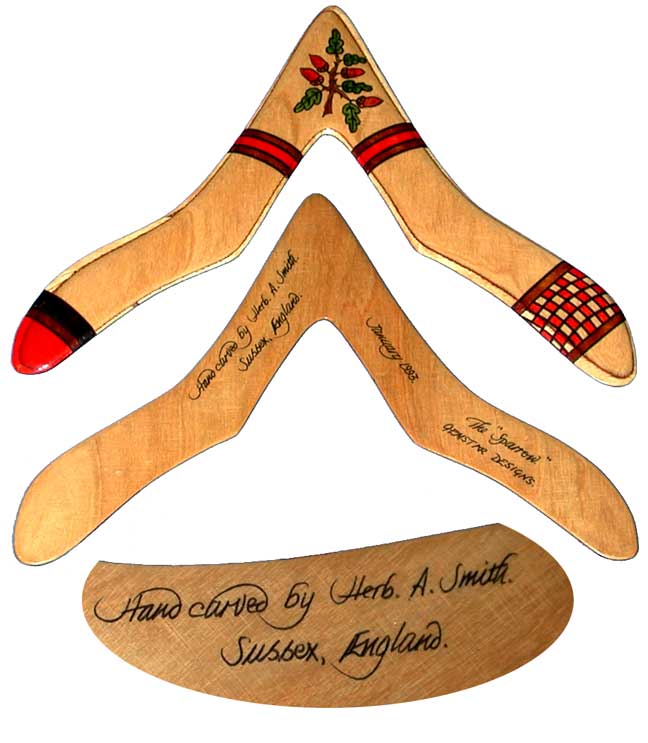 Hand carved by Herb. A. Smith.
Sussex, England.
January 1993.
The "Sparrow"
GEMSTAR DESIGNS.
Hand carved by Herb. A. Smith.
Sussex, England.